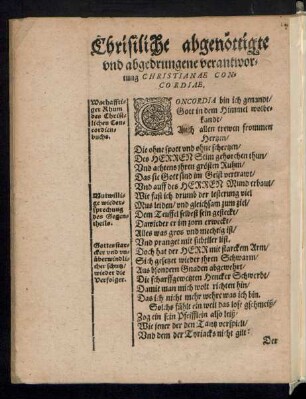 Christliche abgenöttigte
vnd abgedrungene verantwor-
tung CHRISTIANAE CON-
CORDIAE.
Warhafftiger Rhum
des Christlichen Concordienbuchs.
CONCORDIA bin ich genandt/
Gott in dem Himmel wolbekandt/
Auch allen trewen frommen
Hertzen/
Die ohne spott vnd ohne schertzen/
Des HERREN Stim gehorchen thun/
Vnd achtens jhren grösten Rhum/
Das sie Gott sind im Geist vertrawt/
Vnd auff des HERREN Mund erbaut/
Mutwillige widersprechung des Gegentheils.
Wie fast ich drumb der lesterung viel
Mus leiden/ vnd gleichsam zum ziel/
Dem Teuffel selbest sein gesteckt/
Dawider er im zorn erweckt/
Alles was gros vnd mechtig ist/
Vnd pranget mit subtiler list.
Gottes starcker vnd vnüberwindlicher schutz/ wieder die Verfolger.
Doch hat der HERR mit starckem Arm/
Sich gesetzet wieder jhren Schwarm/
Aus besondern Gnaden abgewehrt/
Die scharffgewetzten Hencker Schwerdt/
Damit man mich wolt richten hin/
Das ich nicht mehr wehre was ich bin.
Solchs fühlt ein weil das lose geschmeis/
Zog ein sein Pfeifflein also leis/
Wie jener der den Tantz verspielt/
Vnd dem der Tyriacks nicht gilt:
Der